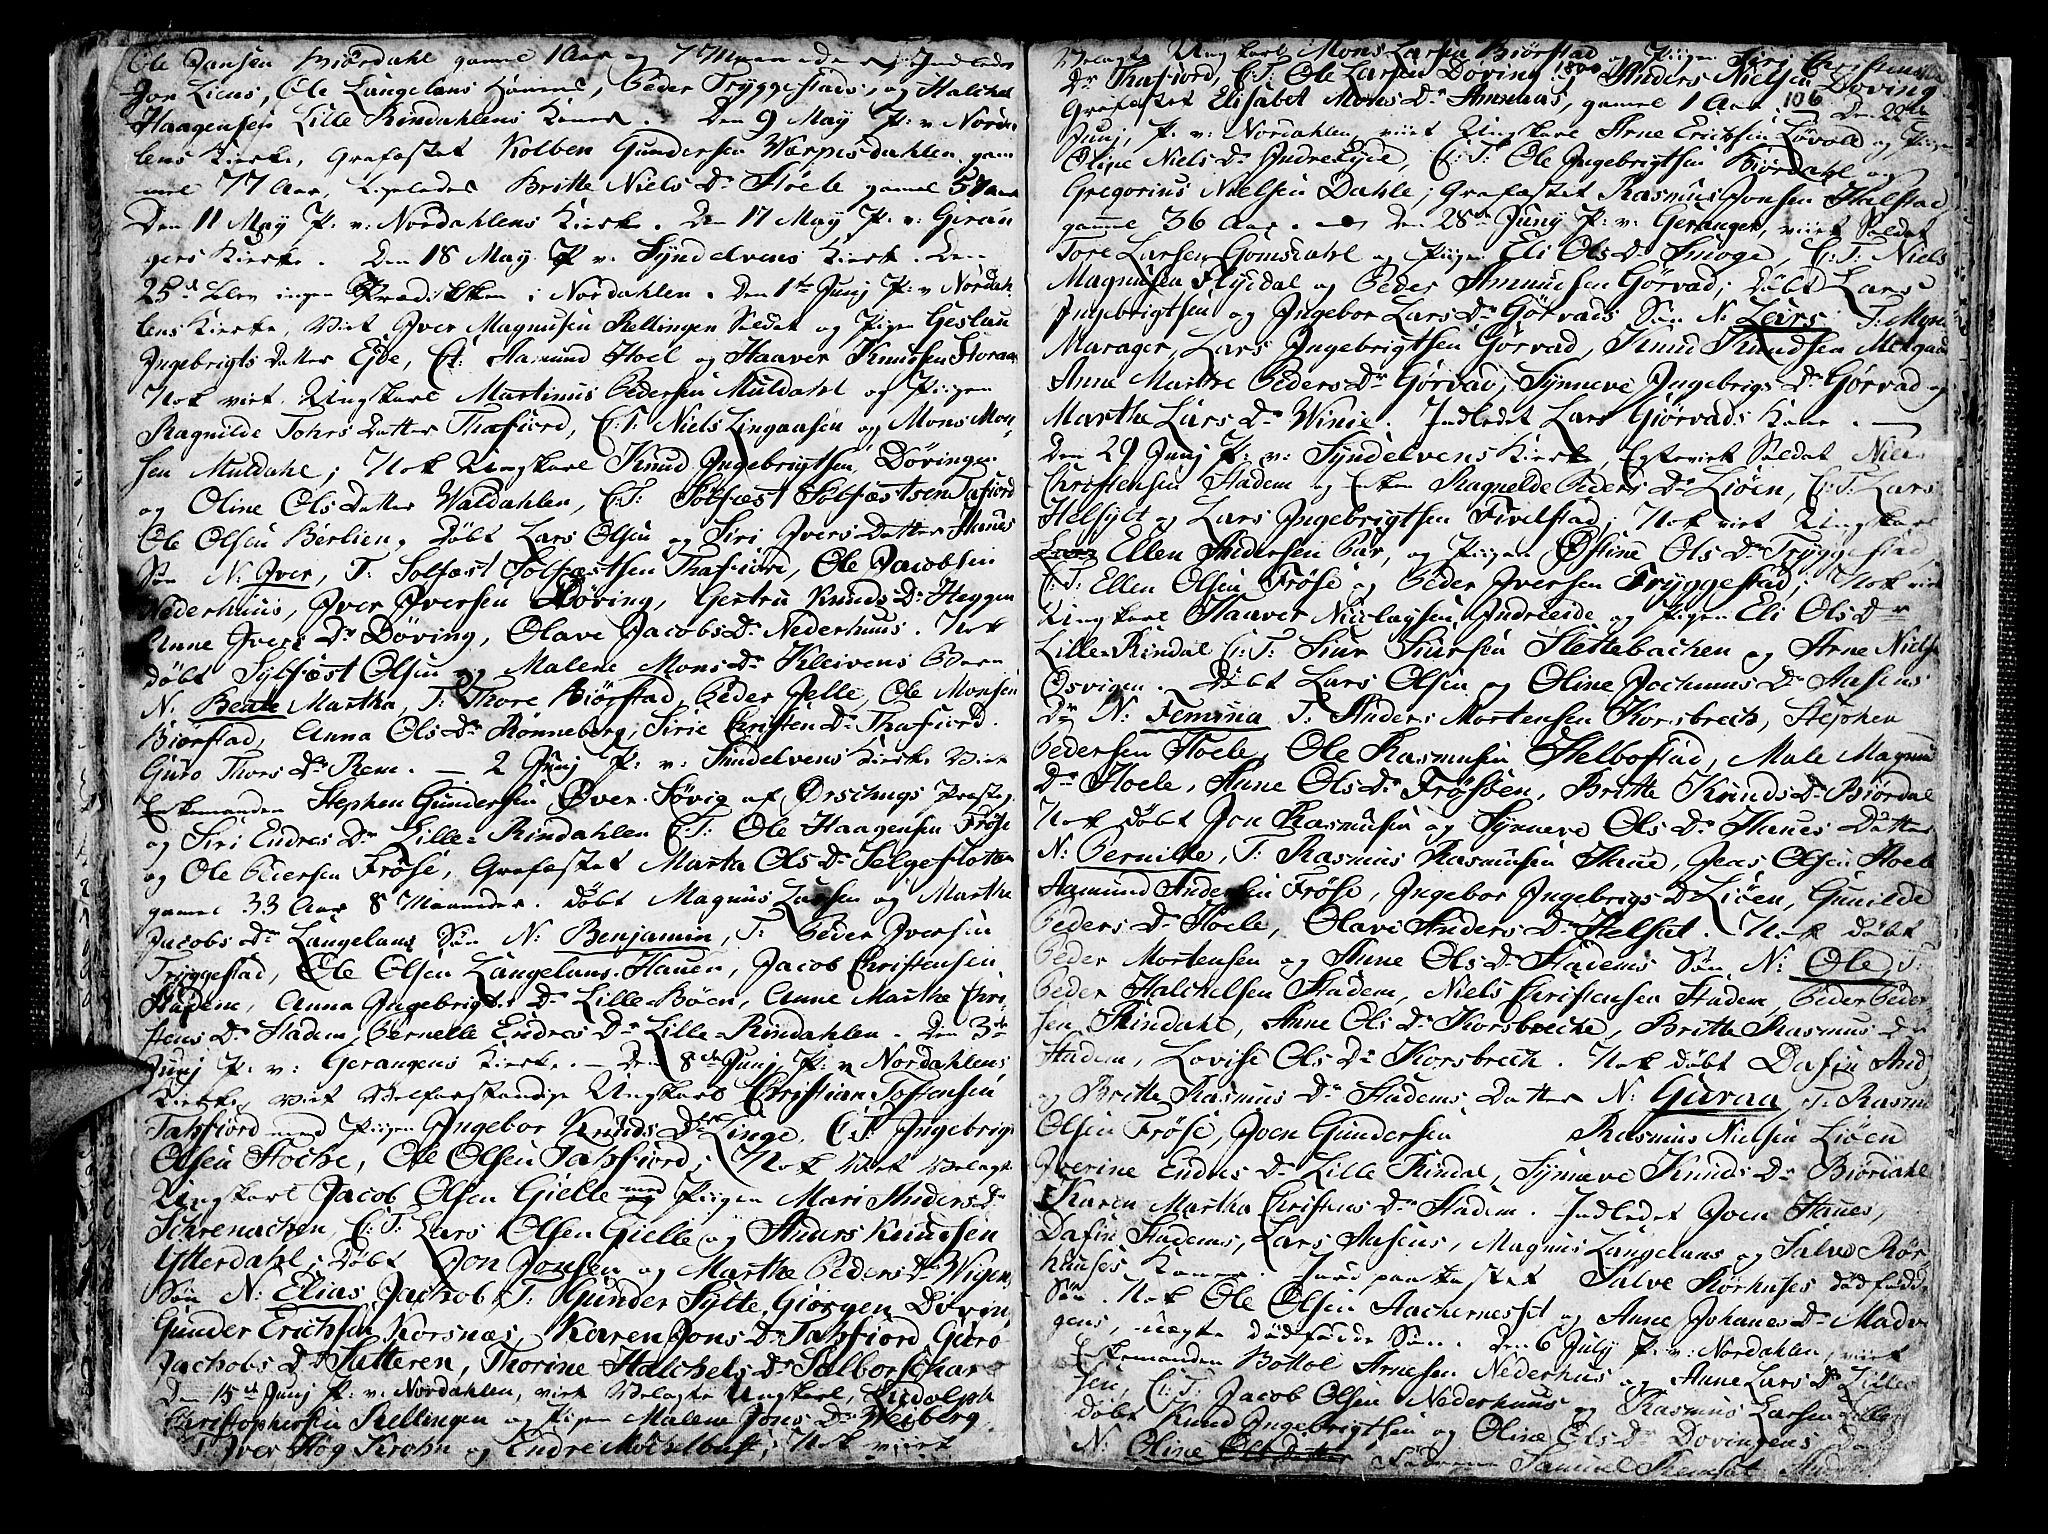 Ole Jansen Biørdahl gamel 1 Aar og 7 Maaneder Indleds
Jon Liens, Ole Langelans Koner, Peder Tryggestads, og Halchel
Haagensen Lille Rindahlens Koner. Den 9 May P: v: Norda
lens Kirke, Grafæstet Kolben Gundersen Werpesdahlen gam
mel 77 Aar, Ligeledes Britte Niels Dr Hoele gamel 57 Aar
Den 11 May P: v: Nordahlens Kirke. Den 17 May P: v: Geran
gers Kirke. Den 18 May P v: Syndelvens Kirke. Den
25de blev ingen Prædikken i Nordahlen. Den 1te Junj P: v Nordah
lens Kirke Viet Iver Magnusen Rellingen Soldat og Pigen Geslau
Ingebrigts Datter Eide, C: Aamund Hoel og Haaver Knudsen Storaas
Nok viet Ungkarl Martinus Pedersen Muldahl og Pigen
Ragnilde Tohrs Datter Thafiord, C:T: Niels Lingaasen og Mons Mon-
sen Muldahl; Nok Ungkarl Knud Ingebrigtsen Døvingen
og Oline Ols Datter Waldahlen, C:T: Sølfæst Sølfæstsen Tafiord
Ole Olsen Berlien, Døbt Lars Olsen og Siri Ivers Datter Hanes
Søn N: Iver, T: Solfæst Solfæstsen Thafiord, Ole Jacobsen
Nederhuus, Iver Iversen Døving, Gertru Knuds Dr Heggen
Anne Ivers Dr Døving, Olave Jacobs Dr Nederhuus. Nok
døbt Sylfæst Olsen og Malene Mons Dr Kleivens Barn
N. Beate Martha, T: Thore Biørstad, Peder Jelle, Ole Monsen
Biørstad, Anna Ols Dr Rønneberg, Sirie Christen Dr Thafiord.
Guro Thors Dr Rem. — 2 Junj P: v: Sundelvens Kirke Viet
Enkemanden Stephen Gundersen Over-Søvig af Ørschugs Præsteg.
og Siri Endres Dr Lille-Rindahlen C:T: Ole Haagensen Frøse
og Ole Pedersen Frøse, Grafæstet Marta Ols Dr Selgeflotten
gamel 33 Aar 8 Maaneder. døbt Magnus Larsen og Marthe
Jacobs Dr Langelans Søn N: Benjamin, T: Peder Iversen
Tryggestad, Ole Olsen Langelans-Hauen, Jacob Christensen
Stadem, Anna Ingebrigts Dr Lille-Bøen, Anne Marthe Chri
stens Dr Stadem, Pernelle Endres Dr Lille-Rindahlen. Den 3de
Junj P: v: Gerangens Kirke. — Den 8de Junj P: v Nordahlens
Kirke, viet Velforstandige Ungkarl Christian Toftensen
Tafsfiord med Pigen Ingebor Knuds Dr Linge. C:T: Ingebrigt
Olsen Hoche, Ole Olsen Tafsfiord; Nok Viet Velagte
Ungkarl Jacob Olsen Gielle med Pigen Mari Anders Dr
Schrenachen, C:T: Lars Olsen Gielle og Anders Knudsen
Ytterdahl; Døbt Jon Jonsen og Marthe Peders Dr Wigen,
Søn N: Elias Jachob, T: Gunder Sylte, Giørgen Døvin,
Gunder Erichsen Korsnæs, Karen Jons Dr Tafsfiord Guro
Jachobs Dr Sætteren, Thorine Halchels Dr Salborschar
Den 15de Junj P: v: Nordahlen, viet Velagte Ungkarl, Rudolph
Christophersen Rellingen og Pigen Malene Jons Dr Weiberg
C:T: Iver Høg Krohn og Endre Mochelbust; Nok viet
Velagte Ungkarl Mons Larsen Biørstad og Pigen Siri Christens
1800
Dr Thafiord, C:T: Ole Larsen Døving, Anders Nielsen Døving
106
Grafæstet Elisabet Mons Dr Amdams, gamel 1 Aar. Den 22de
Junj, P. v: Nordahlen, viet Ungkarl Arne Erichsen Løvold og Pigen
Oline Niels Dr Indreeide, C:T: Ole Ingebrigtsen Biørdahl og
Gregorius Nielsen Dahle; Grafæstet Rasmus Jonsen Halstad
gammel 36 Aar. — Den 28de Juny P: v: Geranger, viet Soldat
Tore Larsen Gomsdahl og Pigen Eli Ols Dr Smoge, C:T: Niels
Magnusen Flydal og Peder Amundsen Gørvad; Døbt Lars
Ingebrigtsen og Ingebor Lars Dr Gørvads Søn N: Lars, T: Myn
Marager, Lars Ingebrigtsen Gørvad, Knud Knudsen Mergaar
Anne Marthe Peders Dr Gørvad, Synneve Ingebrigs Dr Gørvad og
Marthe Lars Dr Winie. Indledet Lars Giørvads Kone. —
Den 29 Junj P: v: Syndelvens Kirke, Egteviet Soldat Niels
Christensen Stadem og Enken Ragnelde Peders Dr Liøen, C:T: Lars
Helsylt og Lars Ingebrigtsen Fivelstad; Nok viet Ungkarl
Ellen Andersen Par, og Pigen Østine Ols Dr Tryggestad,
C:T: Ellen Olsen Frøse og Peder Iversen Tryggestad; Nok viet
Ungkarl Haaver Nicolaysen Indreeide og Pigen Eli Ols Dr
Lille-Rindal C:T: Siur Siursen Slettebachen og Arne Niels
Osvigen. Døbt Lars Olsen og Oline Jochums Dr Aasens
Dr N: Femina T: Anders Mortensen Korsbrech, Stephen
Pedersen Hoele, Ole Rasmusen Helbostad, Male Magnus
Dr Hoele, Anne Ols Dr Frøsøen, Britte Knuds Dr Biørdal
Nok døbt Jon Rasmusen og Synneve Ols Dr Hanes Datter
N: Pernille, T: Rasmus Rasmusen Haue, Jens Olsen Hoele
Aamund Andersen Frøse, Ingebor Ingebrigs Dr Liøen, Gunilde
Peders Dr Hoele, Olave Anders Dr Helset. Nok døbt
Peder Mortensen og Anne Ols Dr Stadems Søn N: Ole, T:
Peder Halchelsen Stadem, Niels Christensen Stadem, Peder Peder
sen Rindahl, Anne Ols Dr Korsbreche, Britte Rasmus Dr
Stadem, Lovise Ols Dr Korsbrech. Nok døbt Dafin And
og Britte Rasmus Dr Stadems Datter N: Guraa, T: Rasmus
Olsen Frøse, Joen Gundersen Rasmus Nielsen Liøen
Iverine Endres Dr Lille Rindal, Synneve Knuds Dr Biørdahl
Karen Martha Christens Dr Stadem. Indledet Joen Haues,
Dafin Stadems, Lars Aasens, Magnus Langelans og Salve Rør
huuses Koner. Jordpaakastet Salve Rørhuses dødfødde
Søn. Nok Ole Olsen Aachernesset og Anne Johanes Dr Madvi
gens, uægte dødfødde Søn. Den 6 July P: v: Nordahlen, viet
Enkemanden Bottol Arnesen Nederhus og Anne Lars Dr Lille
sen, C:T: Jacob Olsen Nederhuus og Rasmus Larsen Lille
døbt Knud Ingebrigtsen og Oline Ols Dr Dovingens
N: Oline Samuel